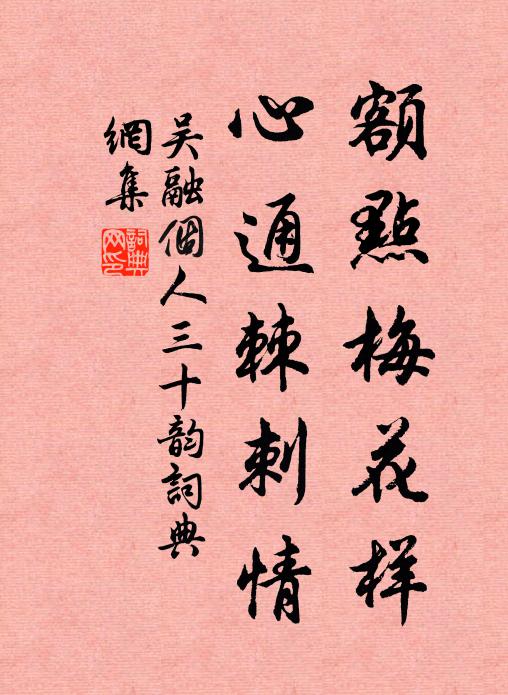 額點梅花样
心通棘刺情
吴融個人三十韵詞典
網集
詞典
网印